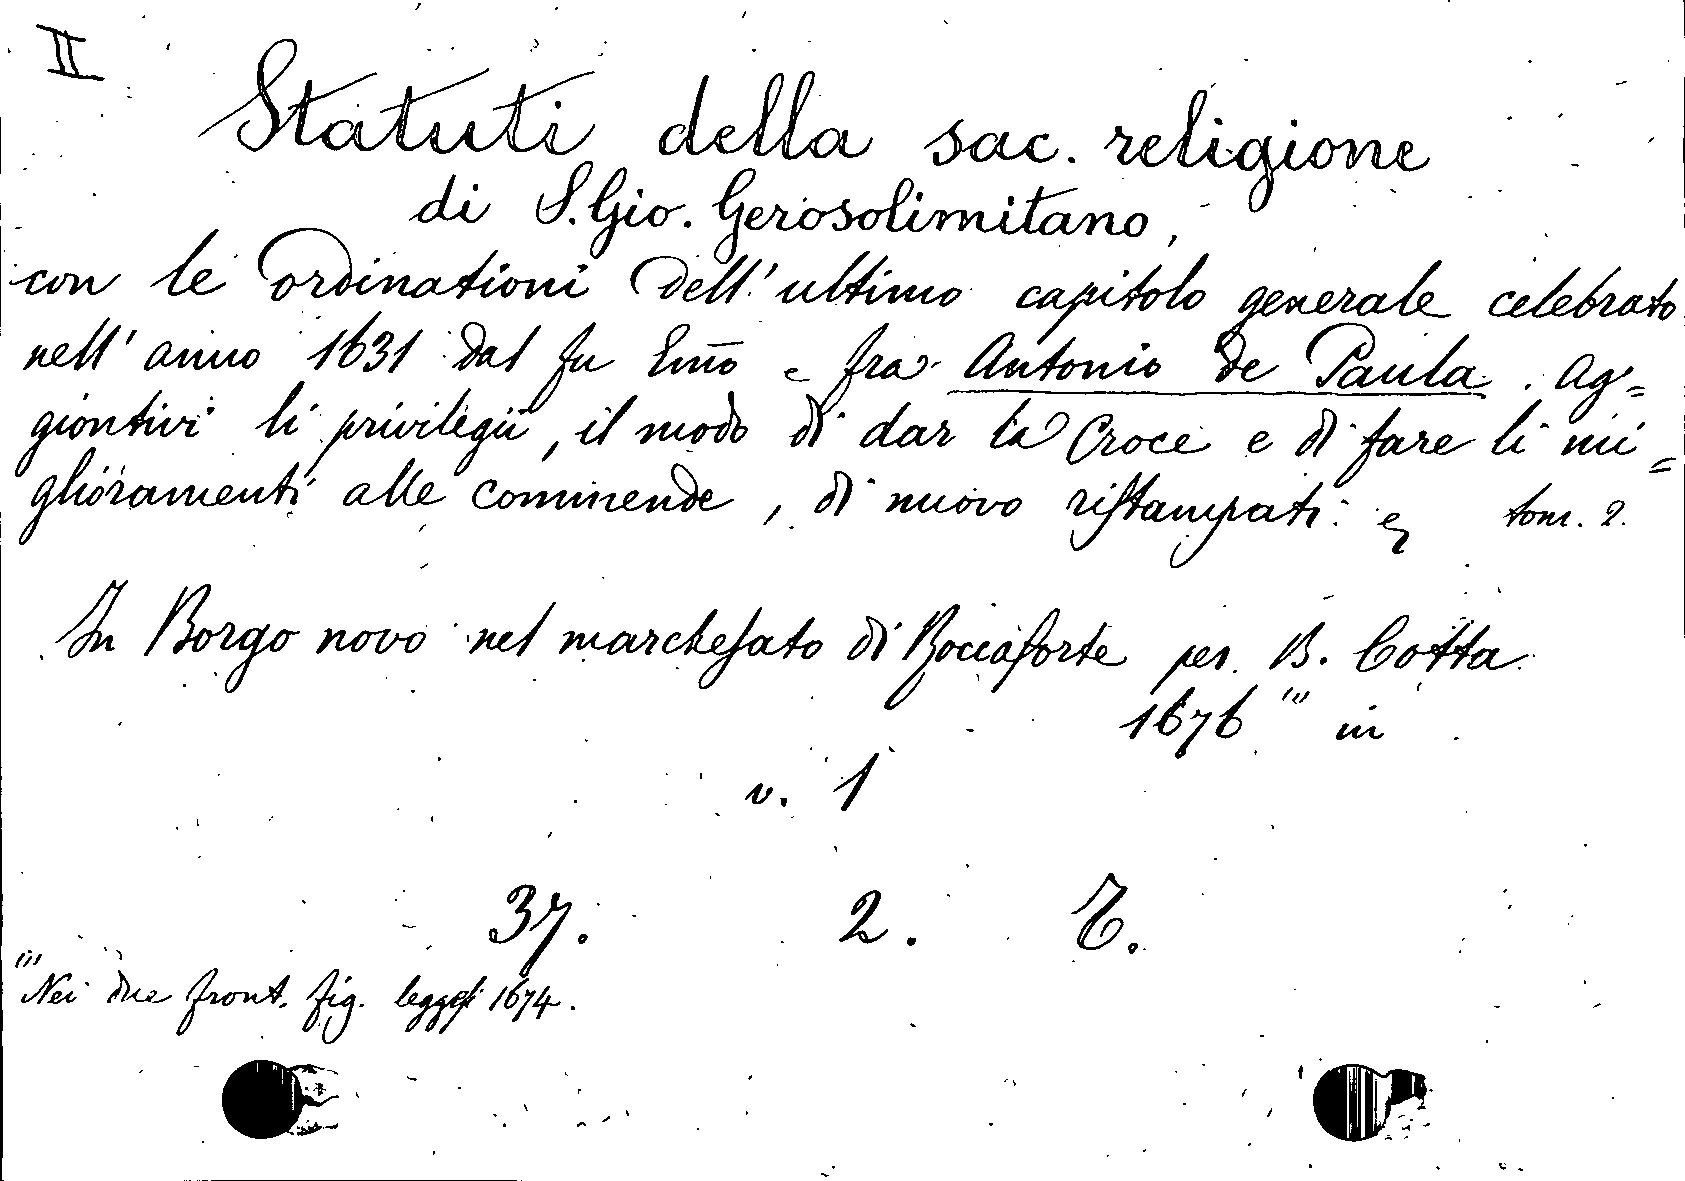 II
Statuti della sac. religione
di S. Gio. Gerosolimitano,
con le ordinationi dell' ultimo capitolo generale celebrato
nell' anno 1631 dal fu Emo e fra Antonio de Paula. Ag=
giontivi li privilegii, il modo di dar la Croce e di fare li mi=
glioramenti alle commende, di nuovo ristampati
tom. 2.
In Borgo novo nel marchesato di Roccaforte per B. Cotta
1676 ''' in
v. 1
37. 2. E.
''' Nei due front. fig. leggesi 1674.